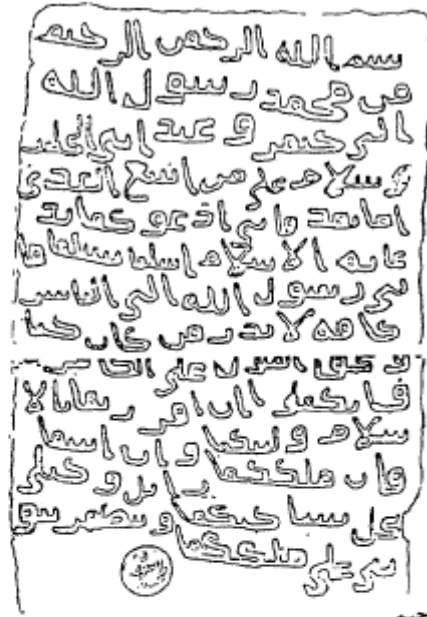 بسم الله الرحمن الرحيم
من محمد رسول الله
الى جيفر و عبد ابني الجلند
ى السلام على من اتبع الهدى
اما بعد فاني ادعوكما بد
عايه الاسلام اسلما تسلما فا
ني رسول الله الى الناس
كافه لانذر من كان حيا
و يحق القول على الكافرين
فانكما ان اقررتما بالا
سلام وليتكما وان ابيتما
فان ملككما زايل و خيلي
تحل بساحتكما و تظهر نبو
تي على ملككما